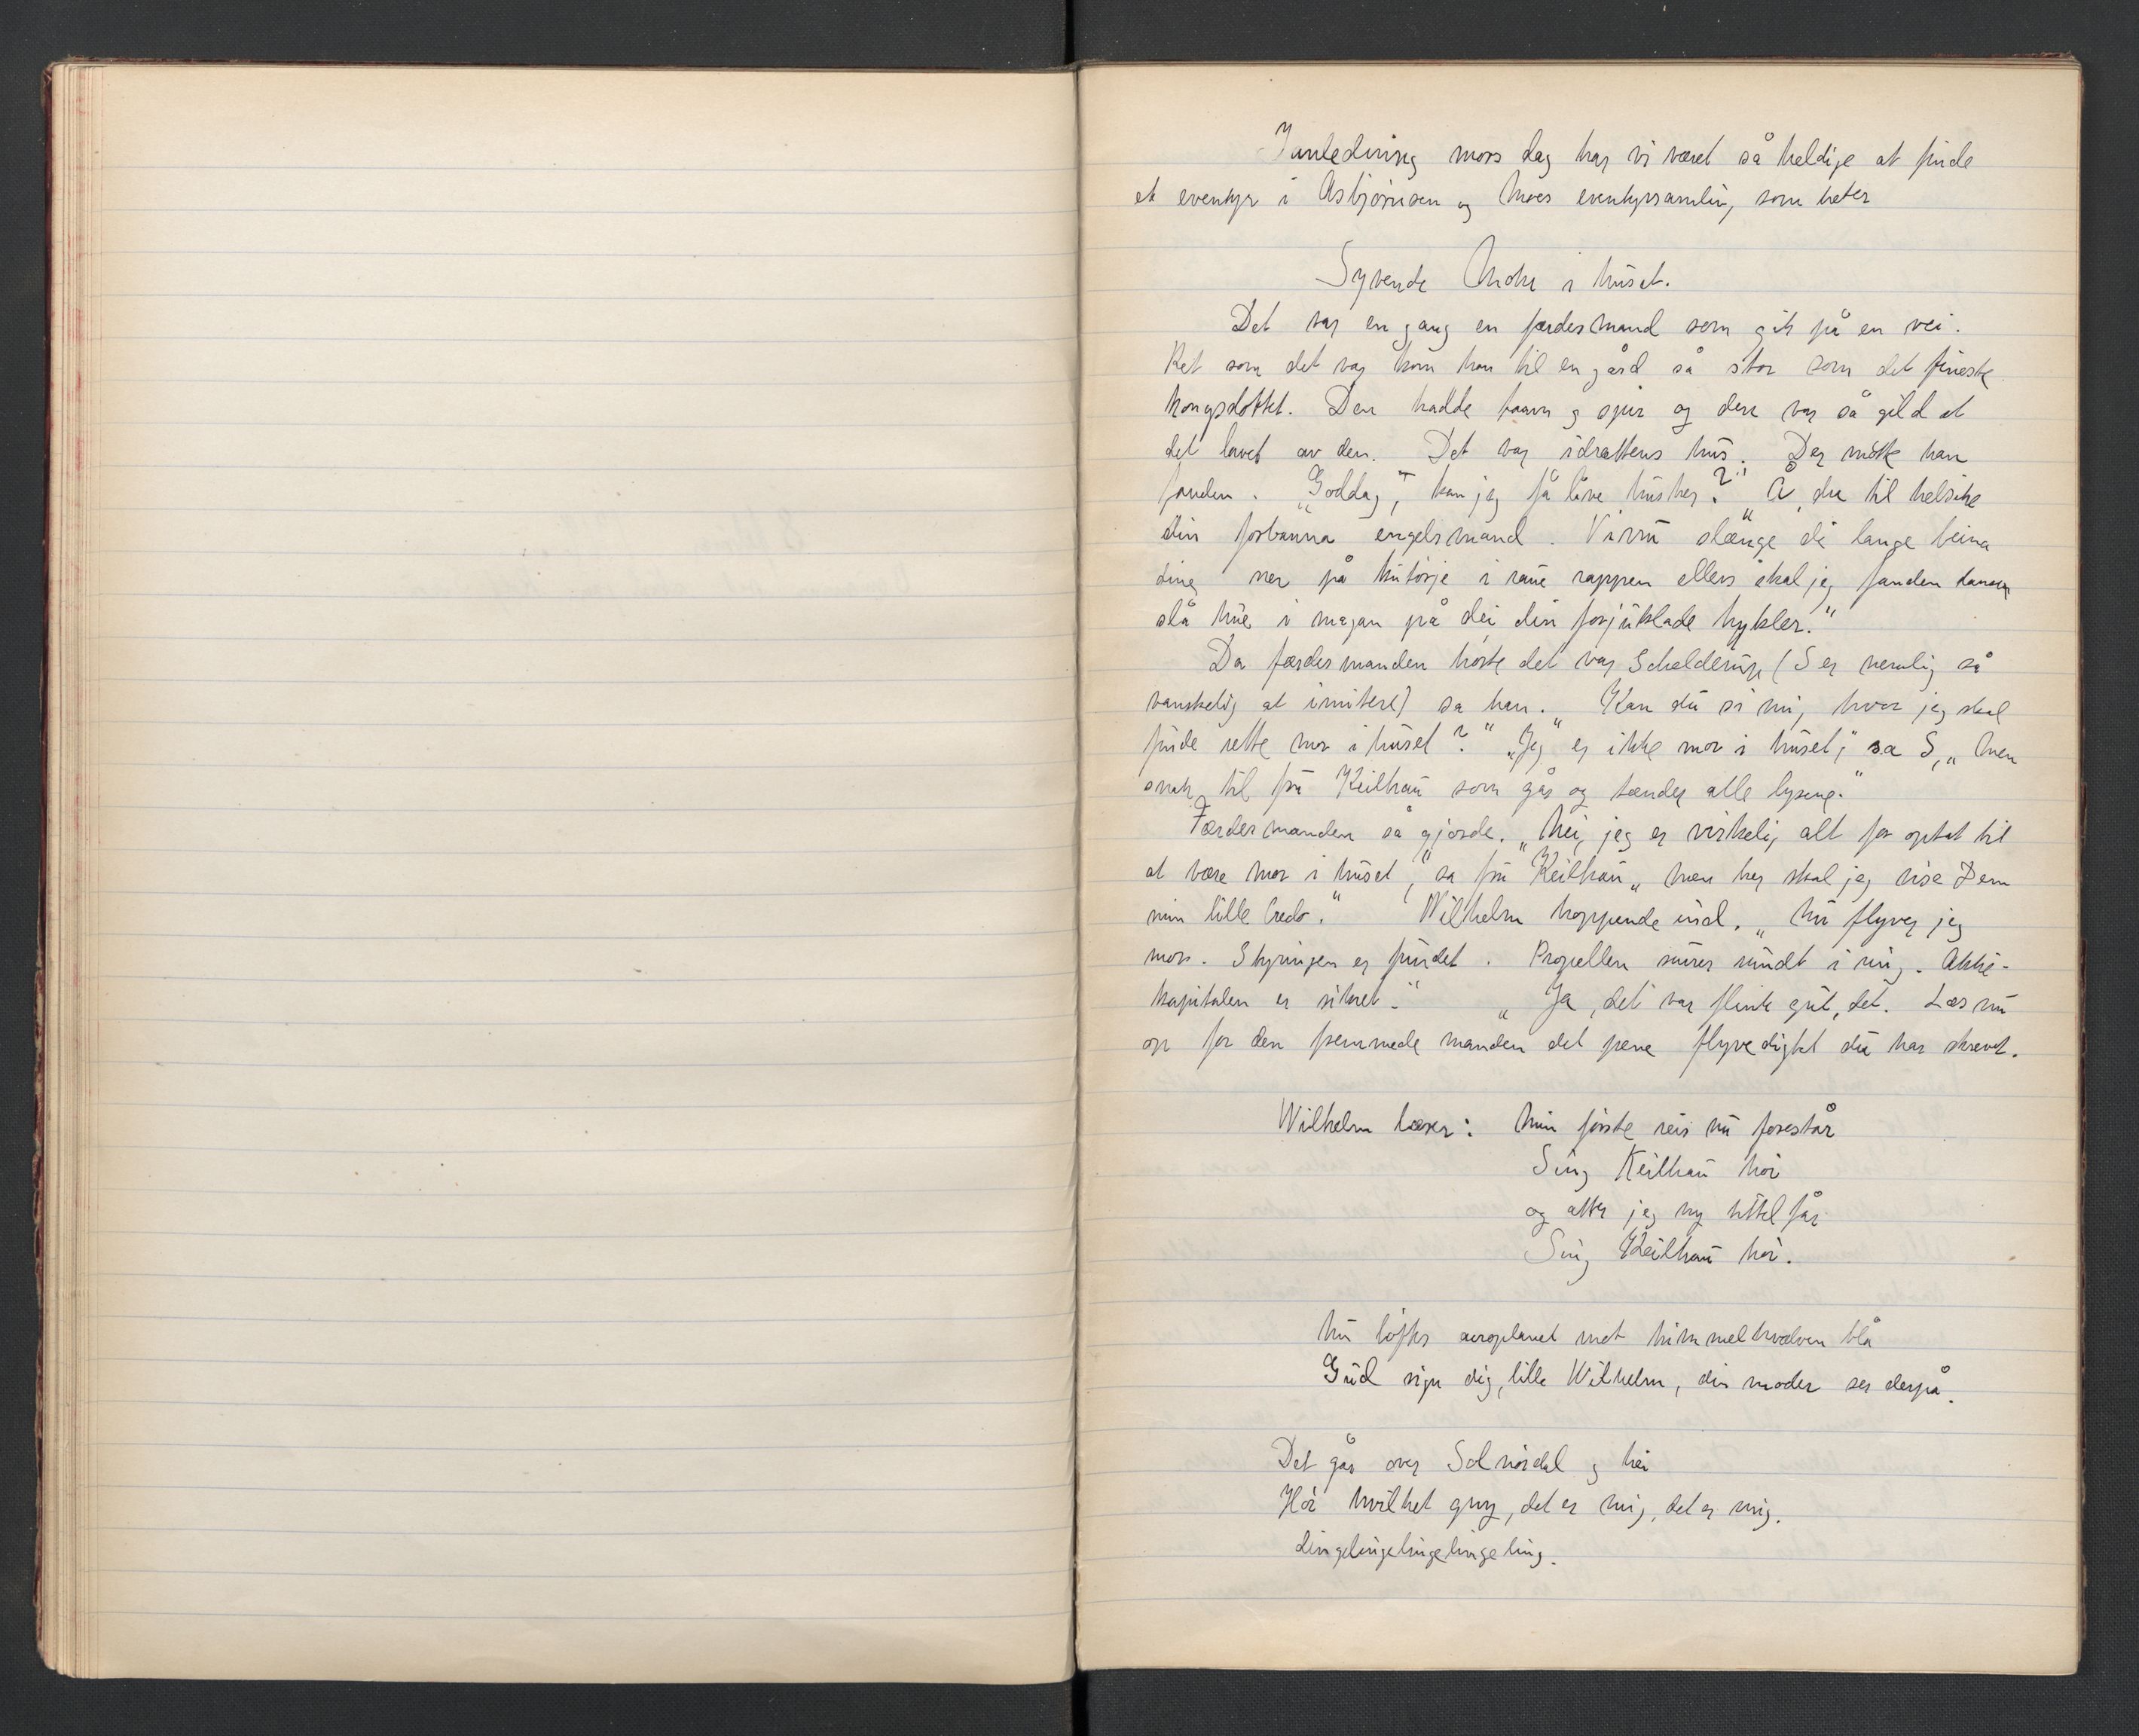 I anledning mors dag har vi været så heldige at finde
et eventyr i Asbjørnsen og Moes eventyrsamling, som heter
Syvende Mor i huset.
Det var en gang en færdesmand som gik på en vei.
Ret som det var kom han til en gård så stor som det fineste
kongsslottet. Den hadde taarn og spir og den var så gild at
det lavet av den. Det var idrættens hus. Der møtte han
fanden. „Goddag", kan jeg få låne hus her?" „Å, du til helsike
din forbanna engelsmand. Vi nu slænge di lange beina
dine ner på kutorje i raue rappen ellers skal jeg fanden
slå hue i magan på dei din forjuklade hykler."
Da færdesmanden hørte det var Schelderup (S er nemlig så
vanskelig at imitere) sa han. Kan du si mig hvor jeg skal
finde rette mor i huset?" „Jeg er ikke mor i huset," sa S, „Men
snak til fru Keilhau som går og tænder alle lysene."
Færdesmanden så gjorde. „Nei, jeg er virkelig alt for optat til
at være mor i huset," sa fru Keilhau „men her skal jeg vise Dem
min lille bedo." Wilhelm hoppende ind. „Nu flyver jeg
mor. Styringen er fundet. Propellen surrer rundt i ring. Aktie-
kapitalen er sikret." „Ja, det var flink gut, det. Læs nu
op for den fremmede manden det pene flyvedigtet du har skrevet.
Wilhelm læser: Min første reis nu forestår
Sing Keilhau hei
og atter jeg ny tittel får
Sing Keilhau hei.
Nu løftes aeroplanet mot himmelhvælven blå
Gud signe dig, lille Wilhelm, din moder ser derpå.
Det går over Solnørdal og hei
Hør hvilket gny, det er mig, det er mig.
Lingelingelingelingeling.